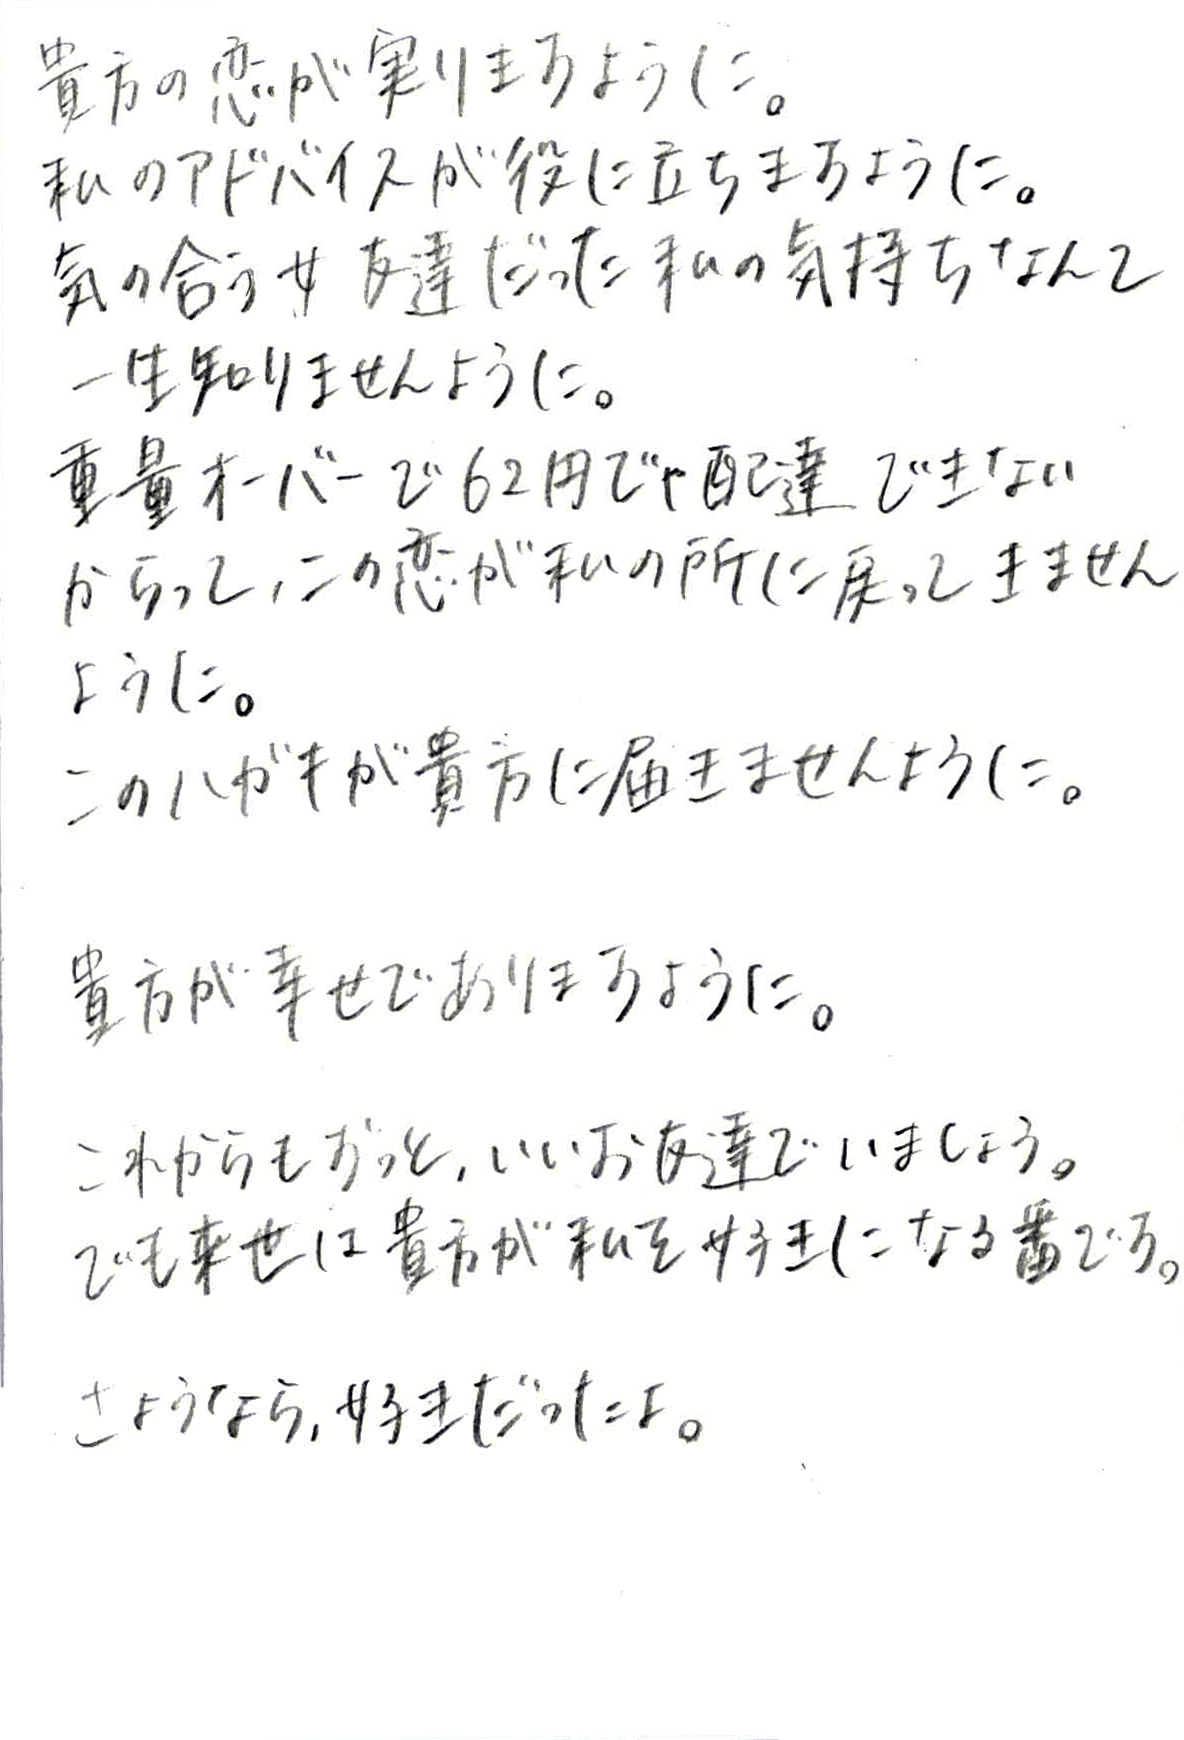 貴方の恋が実りますように。
私のアドバイスが役に立ちますように。
気の合う女友達だった私の気持ちなんて
一生知りませんように。
重量オーバーで62円じゃ配達できない
からって、この恋が私の所に戻ってきません
ように。
このハガキが貴方に届きませんように。
貴方が幸せでありますように。
これからもずっと、いいお友達でいましょう。
でも来世は貴方が私を好きになる番です。
さようなら、好きだったよ。